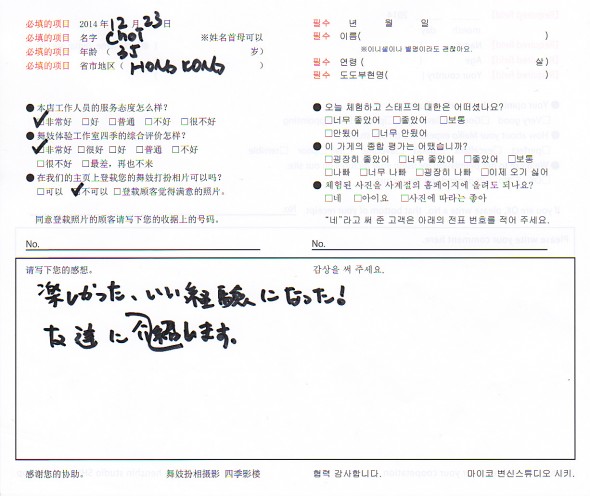 必填的项目 2014年 12月 23日
必填的项目 名字 Choi ※姓名首母可以
必填的项目 年龄( 35 岁)
必填的项目 省市地区( HONG KONG
필수 년 월 일
필수 이름( )
※이니셜이나 별명이라도 괜찮아요.
필수 연령( 살)
필수 도도부현명( )
●本店工作人员的服务态度怎么样?
□非常好 □好 □普通 □不好 □很不好
●舞妓体验工作室四季的综合评价怎样?
□非常好 □很好 □好 □普通 □不好
□很不好 □最差，再也不来
●在我们的主页上登载您的舞妓扮相照片可以吗?
□可以 □不可以 □登载顾客觉得满意的照片。
同意登载照片的顾客请写下您的收据上的号码。
●오늘 체험하고 스태프의 대한은 어떠셨나요?
□너무 좋았어 □좋았어 □보통
□안됐어 □너무 안됐어
●이 가게의 종합 평가는 어땠습니까?
□굉장히 좋았어 □너무 좋았어 □좋았어 □보통
□나빠 □너무 나빠 □굉장히 나빠 □이제 오기 싫어
●체험된 사진을 사계절의 홈페이지에 올려도 되나요?
□네 □아이요 □사진에 따라는 좋아
"네"라고 써 준 고객은 아래의 전표 번호를 적어 주세요.
No.
No.
请写下您的感想。
감상을 써 주세요.
楽しかった、いい経験になった!
友達に紹介します。
感谢您的协助。
舞妓扮相摄影 四季影楼
협력 감사합니다.
마이코 변신스튜디오 시키.